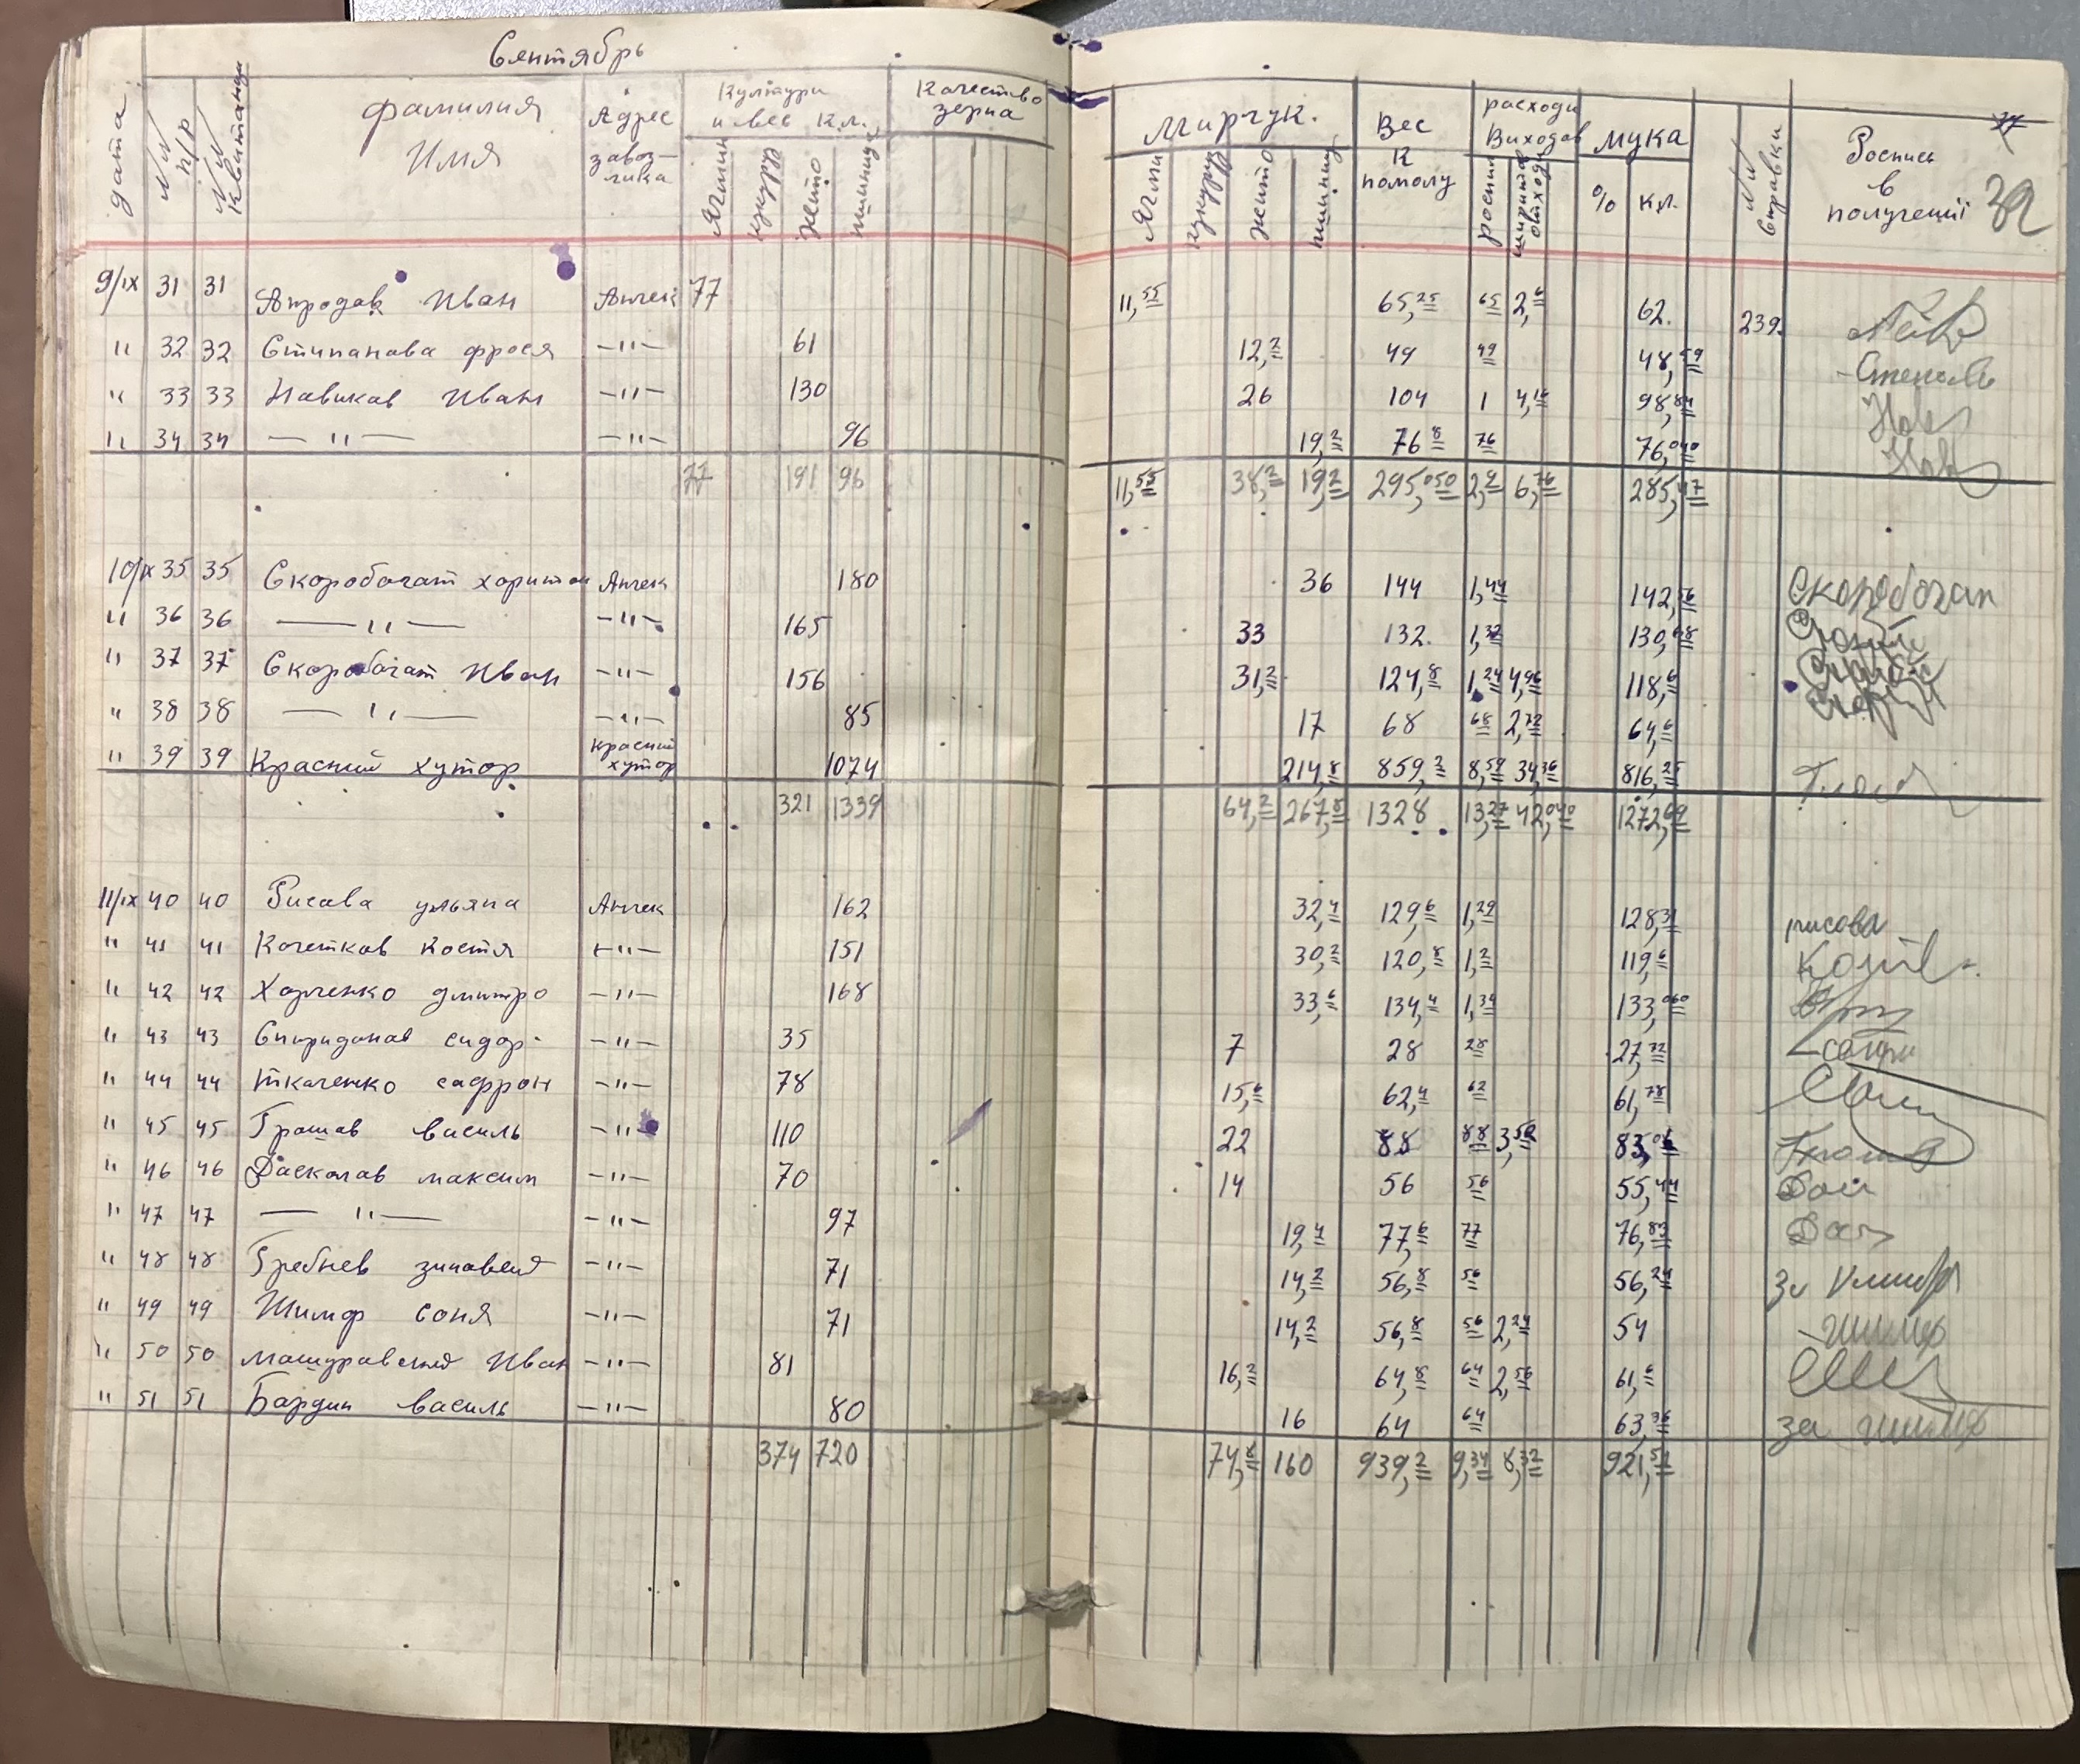 Сентябрь
дата
NN п/р
NN Квитанци
фамилия Имя
Адрес завоз-чика
Култури и вес Кл.
Ячмин
кукуруз
жито
пшиниця
Качество зерна
Мирчук.
Ячми
кукуруз
жито
пшиниц
Вес К помолу
расходи Виходов
роспил
отходи
мука
%
кл.
NN Справки
Роспись в получеції
32
9/IX 31 31 Апродов Иван Анчек 77 11,55 65,25 65 2,6 62. 239.
" 32 32 Стипанова фрося —"— 61 12,2 49 49 48,59
" 33 33 Навиков Иван —"— 130 26 104 1 4,16 98,84
" 34 34 — " — —"— 96 19,2 76 8 76 76,040
77 191 96 11,55 38,2 19,2 295,050 2,9 6,76 285,47
10/IX 35 35 Скоробогат харитон Анчек 180 36 144 1,44 142,56 Скоробогат
" 36 36 — " — —"— 165 33 132. 1,32 130,68
" 37 37 Скоробогат Иван —"— 156 31,2 124,8 1,24 4,96 118,6
" 38 38 — " — —"— 85 17 68 68 2,72 64,6
" 39 39 Красний хутор Красний хутор 1074 214,8 859,2 8,59 34,36 816,25
321 1339 64,2 267,8 1328 13,27 42,040 1272,69
11/IX 40 40 Рисова ульяна Анчек 162 32,4 129,6 1,29 128,31 рисова
" 41 41 Кочетков Костя —"— 151 30,2 120,8 1,2 119,6
" 42 42 Харченко дмитро —"— 168 33,6 134,4 1,34 133,060
" 43 43 Спиридонов сидор —"— 35 7 28 28 27,72
" 44 44 ткаченко сафрон —"— 78 15,6 62,4 62 61,78
" 45 45 Грошов василь —"— 110 22 88 88 3,52
" 46 46 Даскалов максим —"— 70 14 56 56 55,44
" 47 47 — " — —"— 97 19,4 77,6 77 76,83
" 48 48 Гребнев зиновей —"— 71 14,2 56,8 56 56,24 за
" 49 49 Шимф соня —"— 71 14,2 56,8 56 2,24 54 шимф
" 50 50 машуравский Иван —"— 81 16,2 64,8 64 2,56 61,6
" 51 51 Бардин василь —"— 80 16 64 64 63,36 за шимф
374 720 74,8 160 939,2 9,34 8,32 921,51